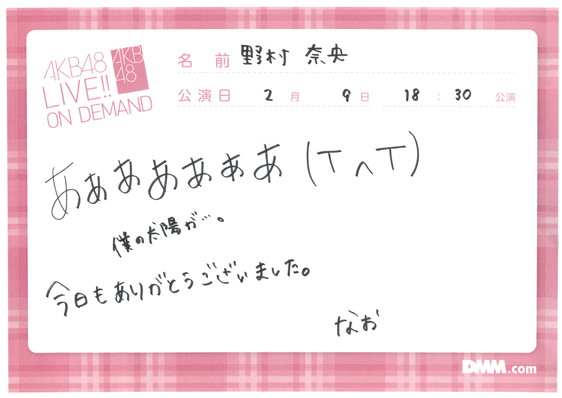 AKB48
LIVE!!
ON DEMAND
AKB
48
名前 野村 奈央
公演日 2月 9日 18:30 公演
あぁぁあぁぁあ (T^T)
僕の太陽が…。
今日もありがとうございました。
なお
DMM.com